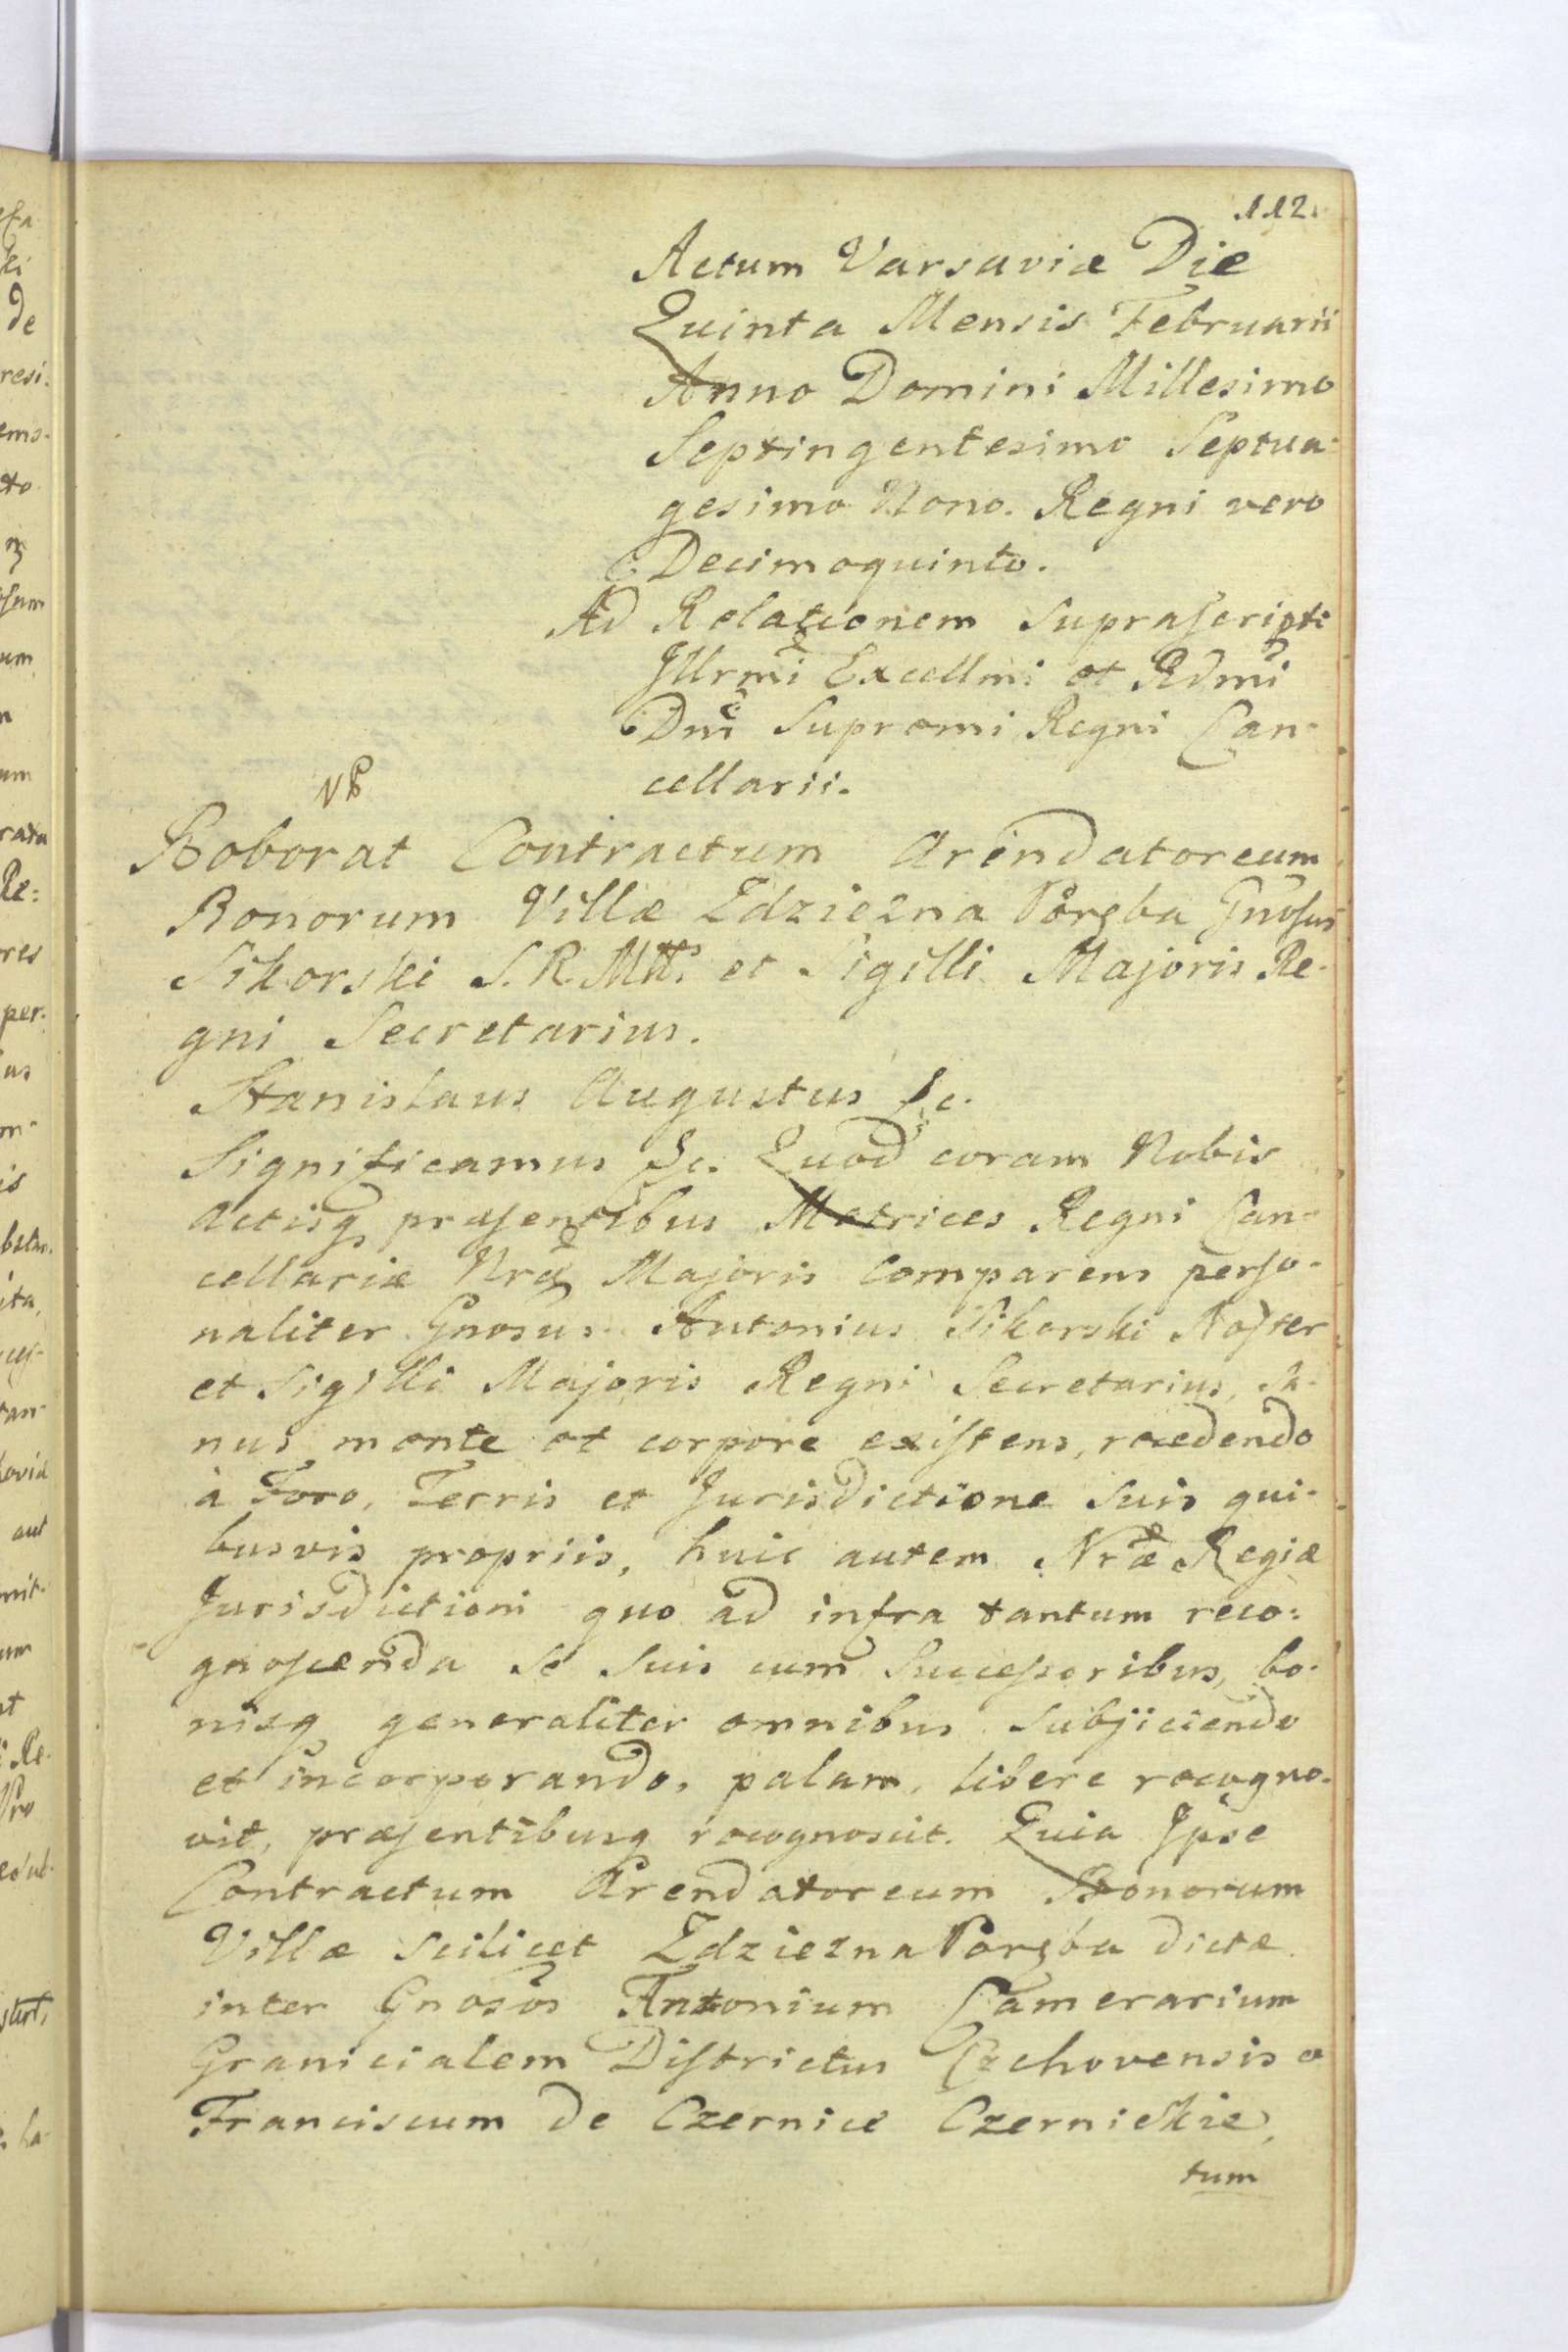 112.
Actum Varsaviæ Die
Quinta Mensis Februarii
Anno Domini Millesimo
Septingentesimo Septua-
gesimo Nono. Regni vero
Decimoquinto.
Ad Relationem suprascripti
Jllrmi Excellmi et Rdmi
Dni Supremi Regni Can-
cellarii.
Roborat Contractum Arendatoreum
Bonorum Villæ Zdziezna Poręba Gnosus
Sikorski S. R. Mttis et Sigilli Majoris Re-
gni Secretarius.
Stanislaus Augustus &c.
Significamus &c. Quod coram Nobis
Actisq præsentibus Metrices Regni Can-
cellariæ Nræ Majoris Comparens perso-
naliter Gnosus Antonius Sikorski Noster
et Sigilli Majoris Regni Secretarius, Sa-
nus mente et corpore existens, recedendo
à Foro, Terris et Jurisdictione suis qui-
busvis propriis, huic autem Nræ Regiæ
Jurisdictioni quo ad infra tantum reco-
gnoscenda se suis cum Successoribus, bo-
nisq generaliter omnibus subjiciendo
et incorporando, palam, libere recogno-
vit, præsentibusq recognoscit. Quia Jpse
Contractum Arendatoreum Bonorum
Villæ scilicet Zdziezna Poręba dictæ
inter Gnosos Antonium Camerarium
Granicialem Districtus Czchovensis e
Franciscum de Czernice Czernickie,
tum